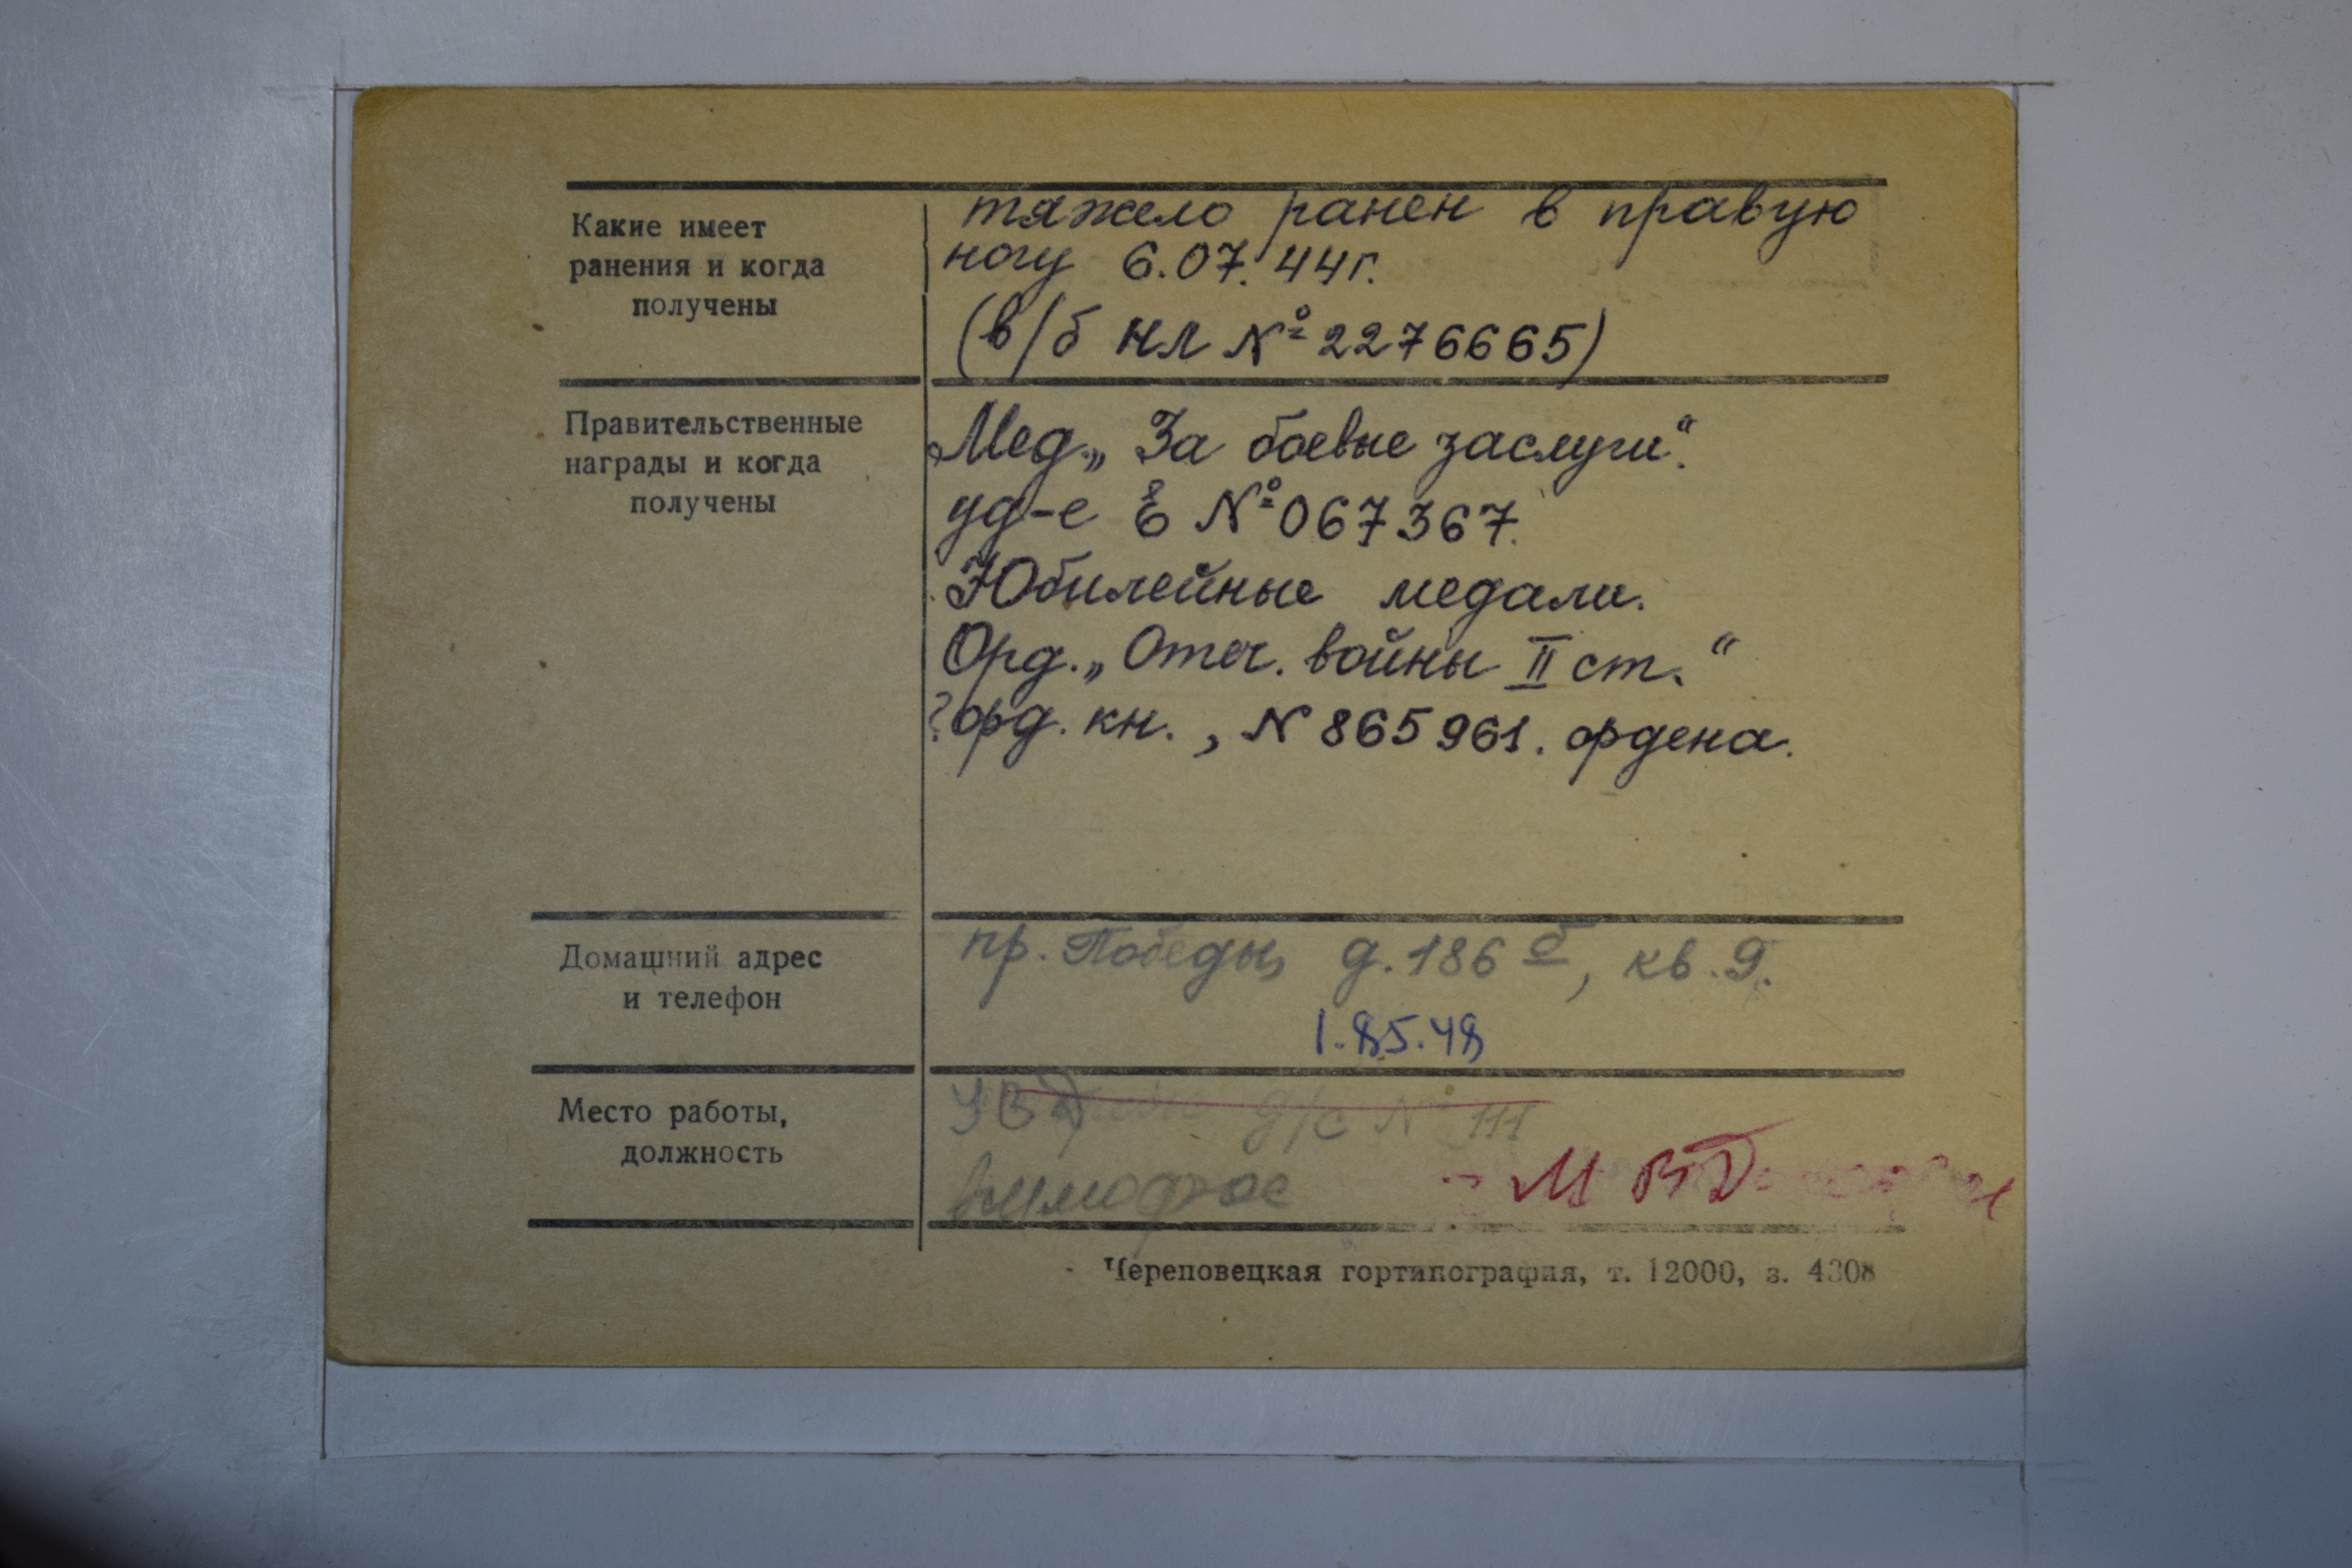 Какие имеет
ранения и когда
получены
тяжело ранен в правую
ногу 6.07.44г.
(в/б нл №2276665)
Правительственные
награды и когда
получены
Мед. „За боевые заслуги“.
уд-е Е №067367.
Юбилейные медали.
Орд. „Отеч. войны II ст.“
? орд. кн., N 865961. ордена.
Домашний адрес
и телефон
пр. Победы, д. 186 б, кв. 9.
1.85.48
Место работы,
должность
УВД д/с № 111
МВД
Череповецкая гортипография, т. 12000, з. 4308